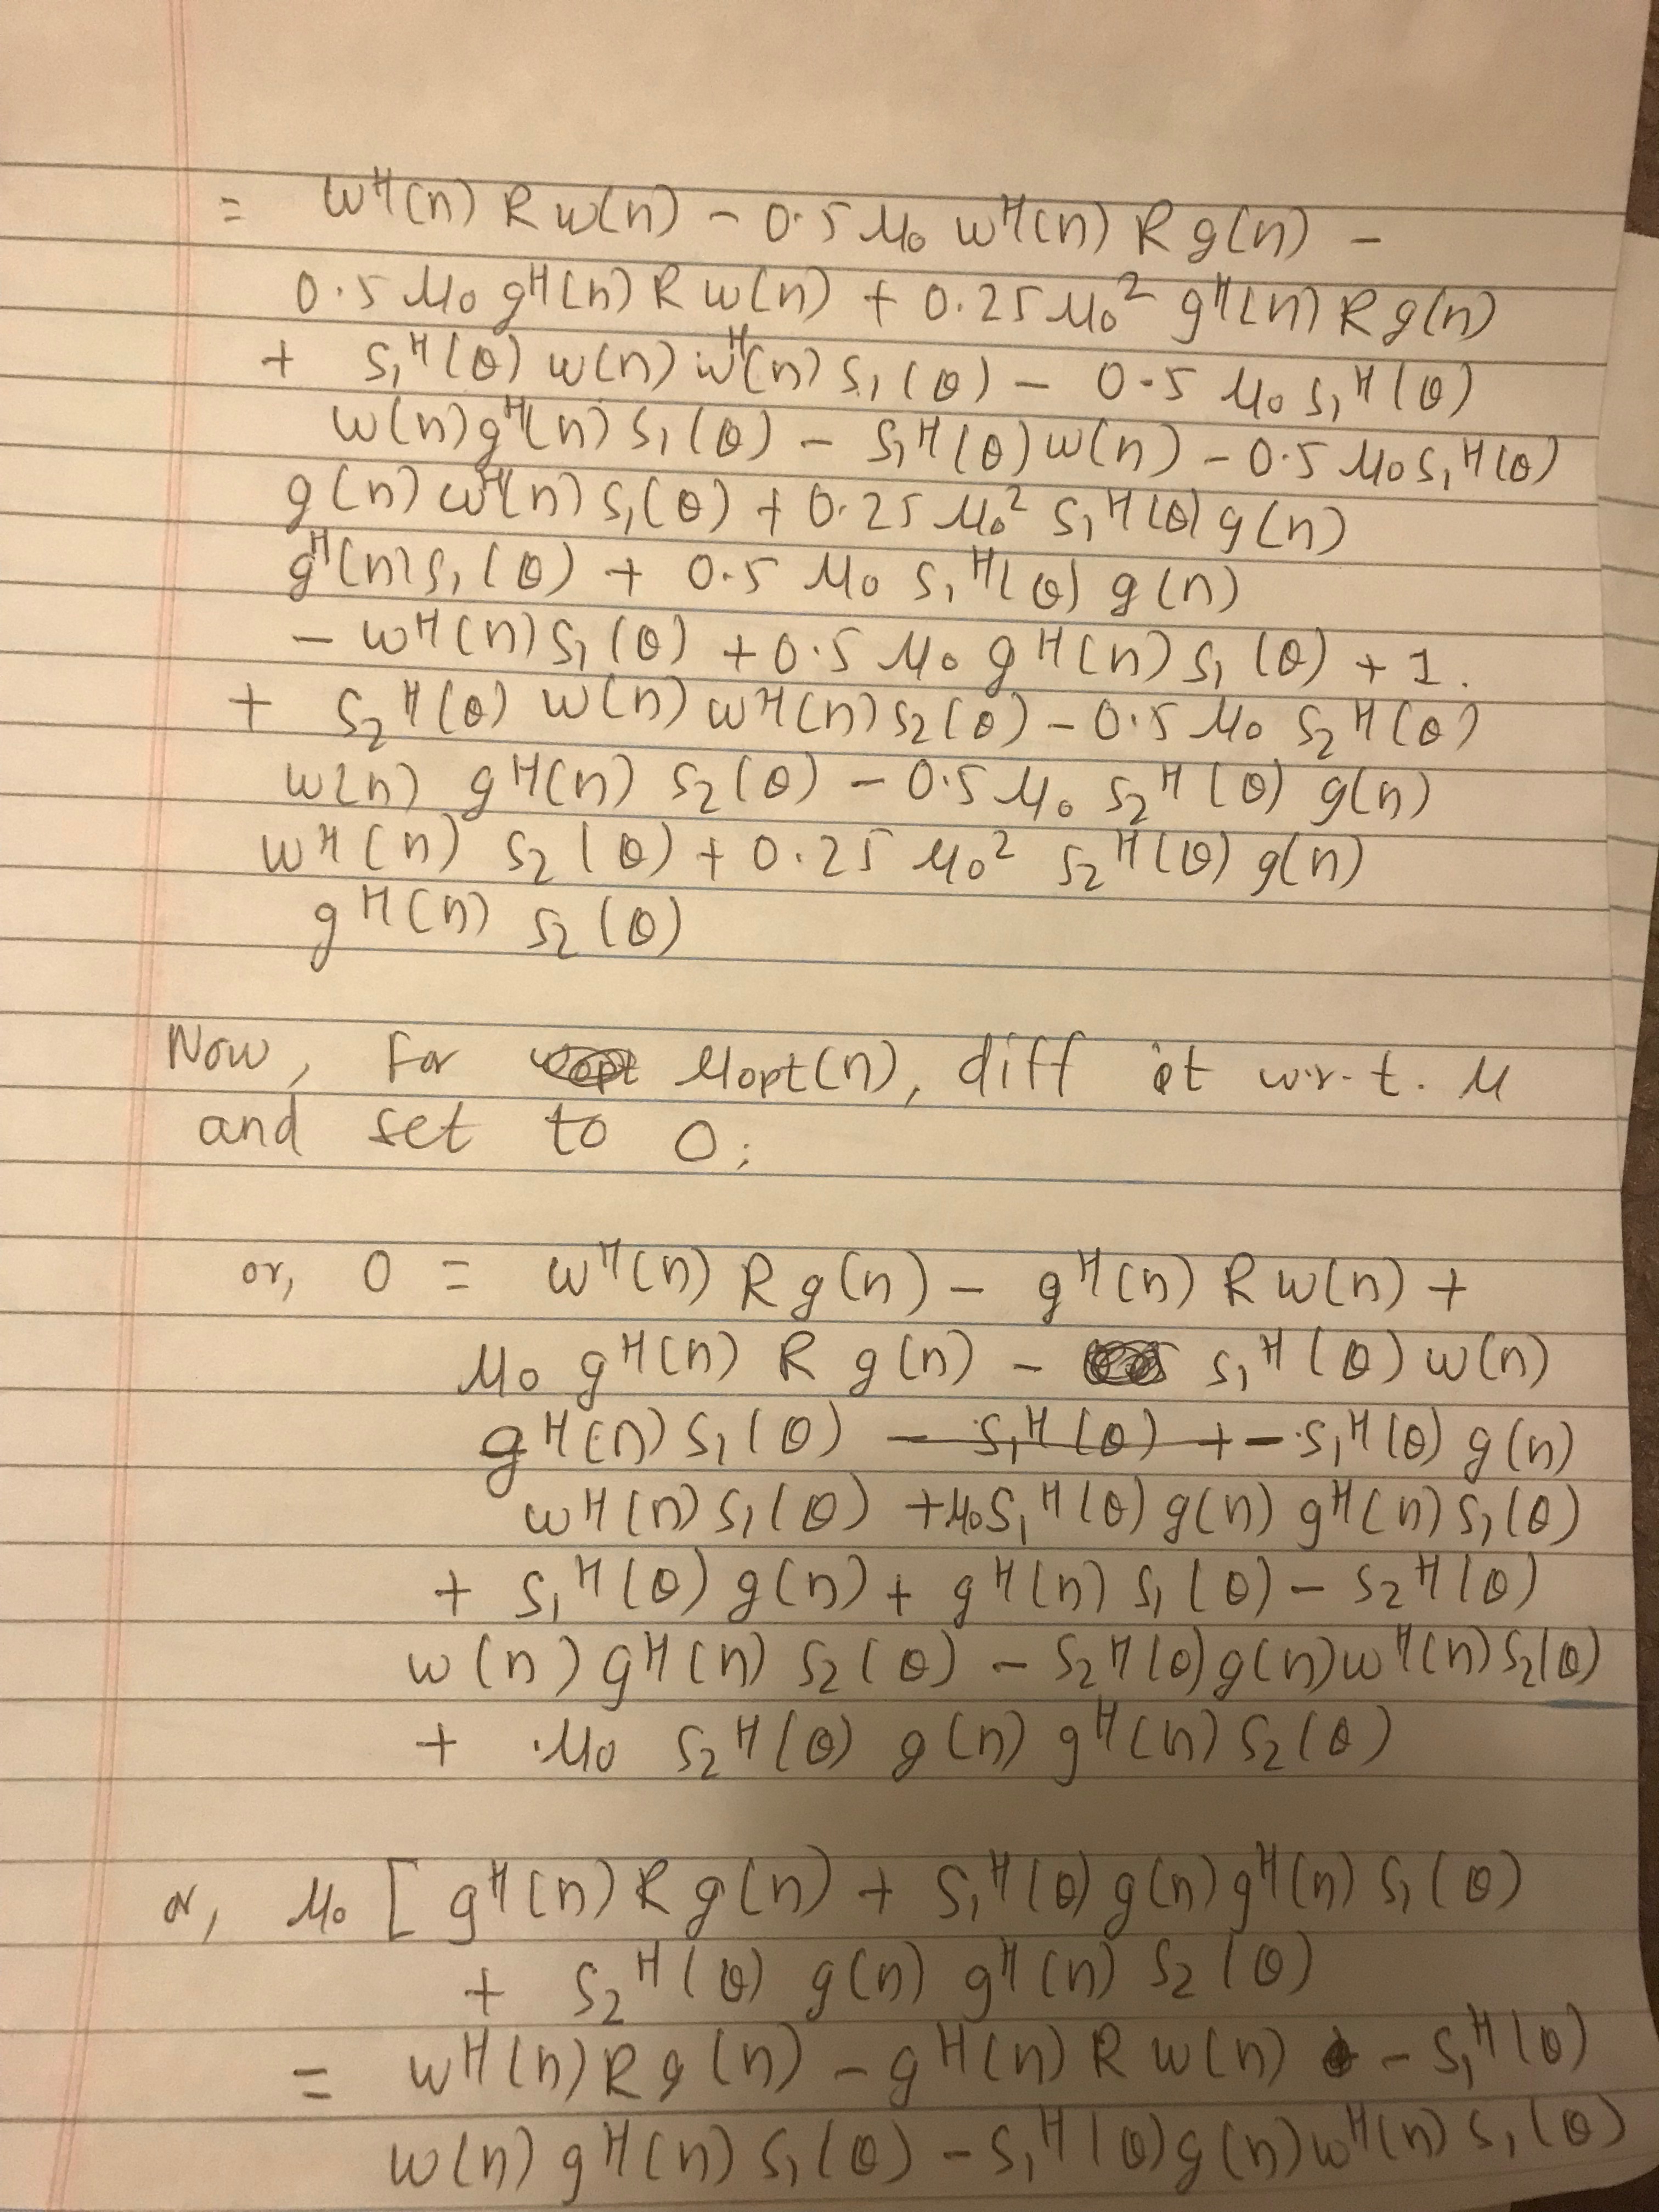 = w^H(n) R w(n) - 0.5 μ₀ w^H(n) R g(n) -
0.5 μ₀ g^H(n) R w(n) + 0.25 μ₀² g^H(n) R g(n)
+ s₁^H(θ) w(n) w^H(n) s₁(θ) - 0.5 μ₀ s₁^H(θ)
w(n) g^H(n) s₁(θ) - s₁^H(θ) w(n) - 0.5 μ₀ s₁^H(θ)
g(n) w^H(n) s₁(θ) + 0.25 μ₀² s₁^H(θ) g(n)
g^H(n) s₁(θ) + 0.5 μ₀ s₁^H(θ) g(n)
- w^H(n) s₁(θ) + 0.5 μ₀ g^H(n) s₁(θ) + 1.
+ s₂^H(θ) w(n) w^H(n) s₂(θ) - 0.5 μ₀ s₂^H(θ)
w(n) g^H(n) s₂(θ) - 0.5 μ₀ s₂^H(θ) g(n)
w^H(n) s₂(θ) + 0.25 μ₀² s₂^H(θ) g(n)
g^H(n) s₂(θ)
Now, for μopt(n), diff it w.r.t. μ
and set to 0;
or, 0 = w^H(n) R g(n) - g^H(n) R w(n) +
μ₀ g^H(n) R g(n) - s₁^H(θ) w(n)
g^H(n) s₁(θ) - s₁^H(θ) + - s₁^H(θ) g(n)
w^H(n) s₁(θ) + μ₀ s₁^H(θ) g(n) g^H(n) s₁(θ)
+ s₁^H(θ) g(n) + g^H(n) s₁(θ) - s₂^H(θ)
w(n) g^H(n) s₂(θ) - s₂^H(θ) g(n) w^H(n) s₂(θ)
+ μ₀ s₂^H(θ) g(n) g^H(n) s₂(θ)
or, μ₀ [ g^H(n) R g(n) + s₁^H(θ) g(n) g^H(n) s₁(θ)
+ s₂^H(θ) g(n) g^H(n) s₂(θ)
= w^H(n) R g(n) - g^H(n) R w(n) - s₁^H(θ)
w(n) g^H(n) s₁(θ) - s₁^H(θ) g(n) w^H(n) s₁(θ)